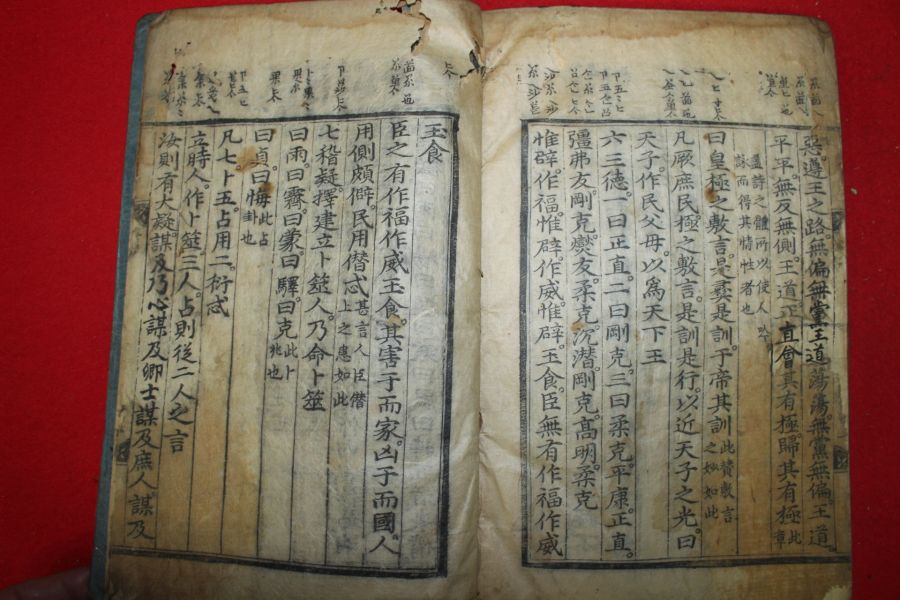 惡遵王之路無偏無黨王道蕩蕩無黨無偏王道
平平無反無側王道正直會其有極歸其有極此章
蓋詩之體所以使人吟
詠而得其情性者也
曰皇極之敷言是彛是訓于帝其訓此贊敷言之妙如此
凡厥庶民極之敷言是訓是行以近天子之光曰
天子作民父母以為天下王
六三德一曰正直二曰剛克三曰柔克平康正直
彊弗友剛克燮友柔克沉潛剛克高明柔克
惟辟作福惟辟作威惟辟玉食臣無有作福作威
玉食
臣之有作福作威玉食其害于而家凶于而國人
用側頗僻民用僭忒甚言人臣僭上之患如此
七稽疑擇建立卜筮人乃命卜筮
曰雨曰霽曰蒙曰驛曰克此卜兆也
曰貞曰悔此占卦也
凡七卜五占用二衍忒
立時人作卜筮三人占則從二人之言
汝則有大疑謀及乃心謀及卿士謀及庶人謀及